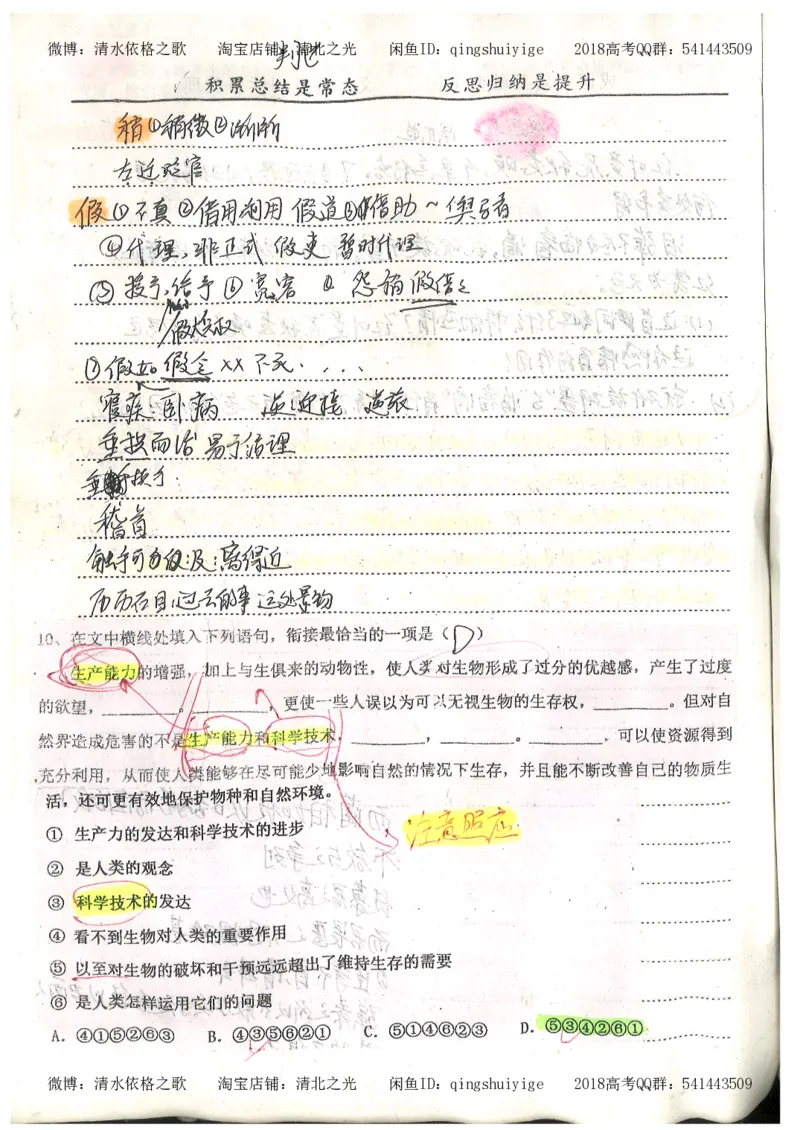 微博：清水依格之歌 淘宝店铺：清北之光 闲鱼ID：qingshuiyige 2018高考QQ群：541443509
积累总结是常态 反思归纳是提升
稍①稍微②渐渐
左迁贬官
假①不真②借用利用 假道③借助～舆马者
④代理，非正式 假吏 暂时代理
⑤授予，给予⑥宽容
⑦假如 假令××不死....
寝疾：卧病 逆：迎接 逆旅
易于治理
稽首
触手可及：离得近
历历在目：过去的事 远处景物
10、在文中横线处填入下列语句，衔接最恰当的一项是（D）
生产能力的增强，加上与生俱来的动物性，使人类对生物形成了过分的优越感，产生了过度
的欲望，________。________，更使一些人误以为可以无视生物的生存权，________。但对自
然界造成危害的不是生产能力和科学技术，________，________。________，可以使资源得到
充分利用，从而使人类能够在尽可能少地影响自然的情况下生存，并且能不断改善自己的物质生
活，还可更有效地保护物种和自然环境。
注意照应
① 生产力的发达和科学技术的进步
② 是人类的观念
③ 科学技术的发达
④ 看不到生物对人类的重要作用
⑤ 以至对生物的破坏和干预远远超出了维持生存的需要
⑥ 是人类怎样运用它们的问题
A．④①⑤②⑥③ B．④③⑤⑥②① C．⑤①④⑥②③ D．⑤③④②⑥①
微博：清水依格之歌 淘宝店铺：清北之光 闲鱼ID：qingshuiyige 2018高考QQ群：541443509